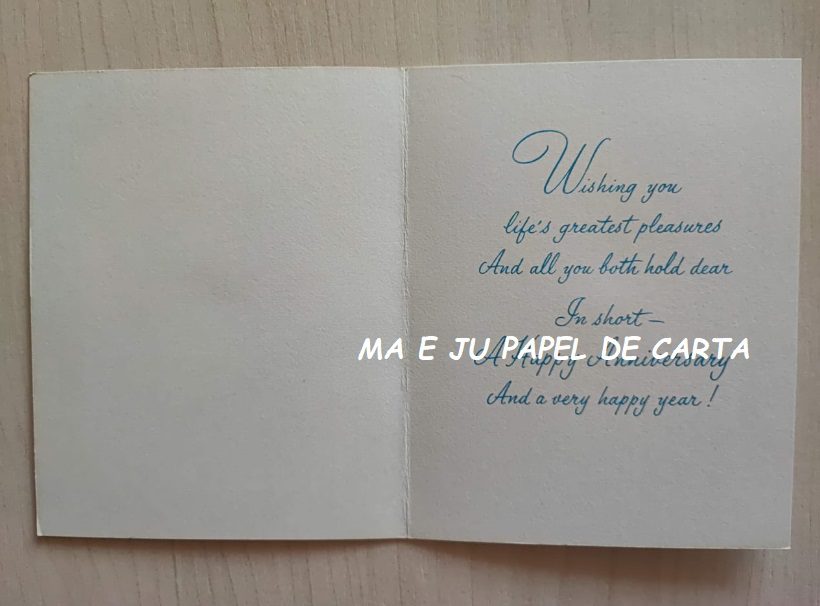 Wishing you
life's greatest pleasures
And all you both hold dear
In short—
MA E JU PAPEL DE CARTA
A Happy Anniversary
And a very happy year!